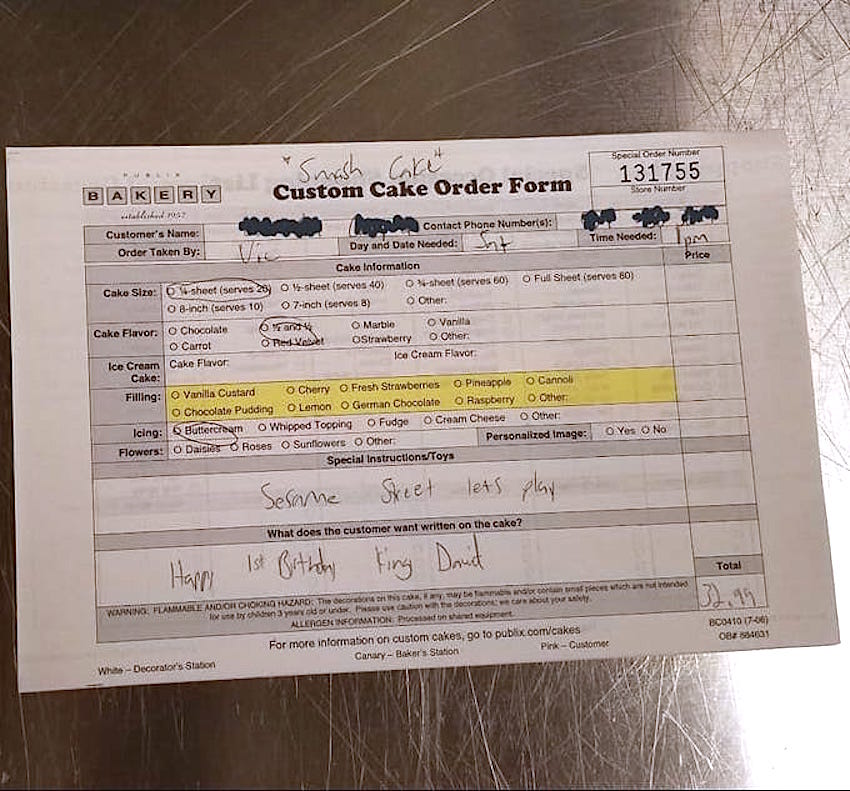 "Smash Cake"
PUBLIX
BAKERY
established 1957
Custom Cake Order Form
Special Order Number
131755
Store Number
Customer's Name: Contact Phone Number(s):
Order Taken By: Vic Day and Date Needed: Sat Time Needed: 1pm
Cake Information Price
Cake Size: O ¼-sheet (serves 20) O ½-sheet (serves 40) O ¾-sheet (serves 60) O Full Sheet (serves 80)
O 8-inch (serves 10) O 7-inch (serves 8) O Other:
Cake Flavor: O Chocolate O ½ and ½ O Marble O Vanilla
O Carrot O Red Velvet O Strawberry O Other:
Ice Cream Cake: Cake Flavor: Ice Cream Flavor:
Filling: O Vanilla Custard O Cherry O Fresh Strawberries O Pineapple O Cannoli
O Chocolate Pudding O Lemon O German Chocolate O Raspberry O Other:
Icing: O Buttercream O Whipped Topping O Fudge O Cream Cheese O Other:
Flowers: O Daisies O Roses O Sunflowers O Other: Personalized Image: O Yes O No
Special Instructions/Toys
Sesame Street lets play
What does the customer want written on the cake?
Happy 1st Birthday King David
Total
32.99
WARNING: FLAMMABLE AND/OR CHOKING HAZARD: The decorations on this cake, if any, may be flammable and/or contain small pieces which are not intended
for use by children 3 years old or under. Please use caution with the decorations; we care about your safety.
ALLERGEN INFORMATION: Processed on shared equipment.
For more information on custom cakes, go to publix.com/cakes
BC0410 (7-06)
OB# 884631
White – Decorator's Station Canary – Baker's Station Pink – Customer